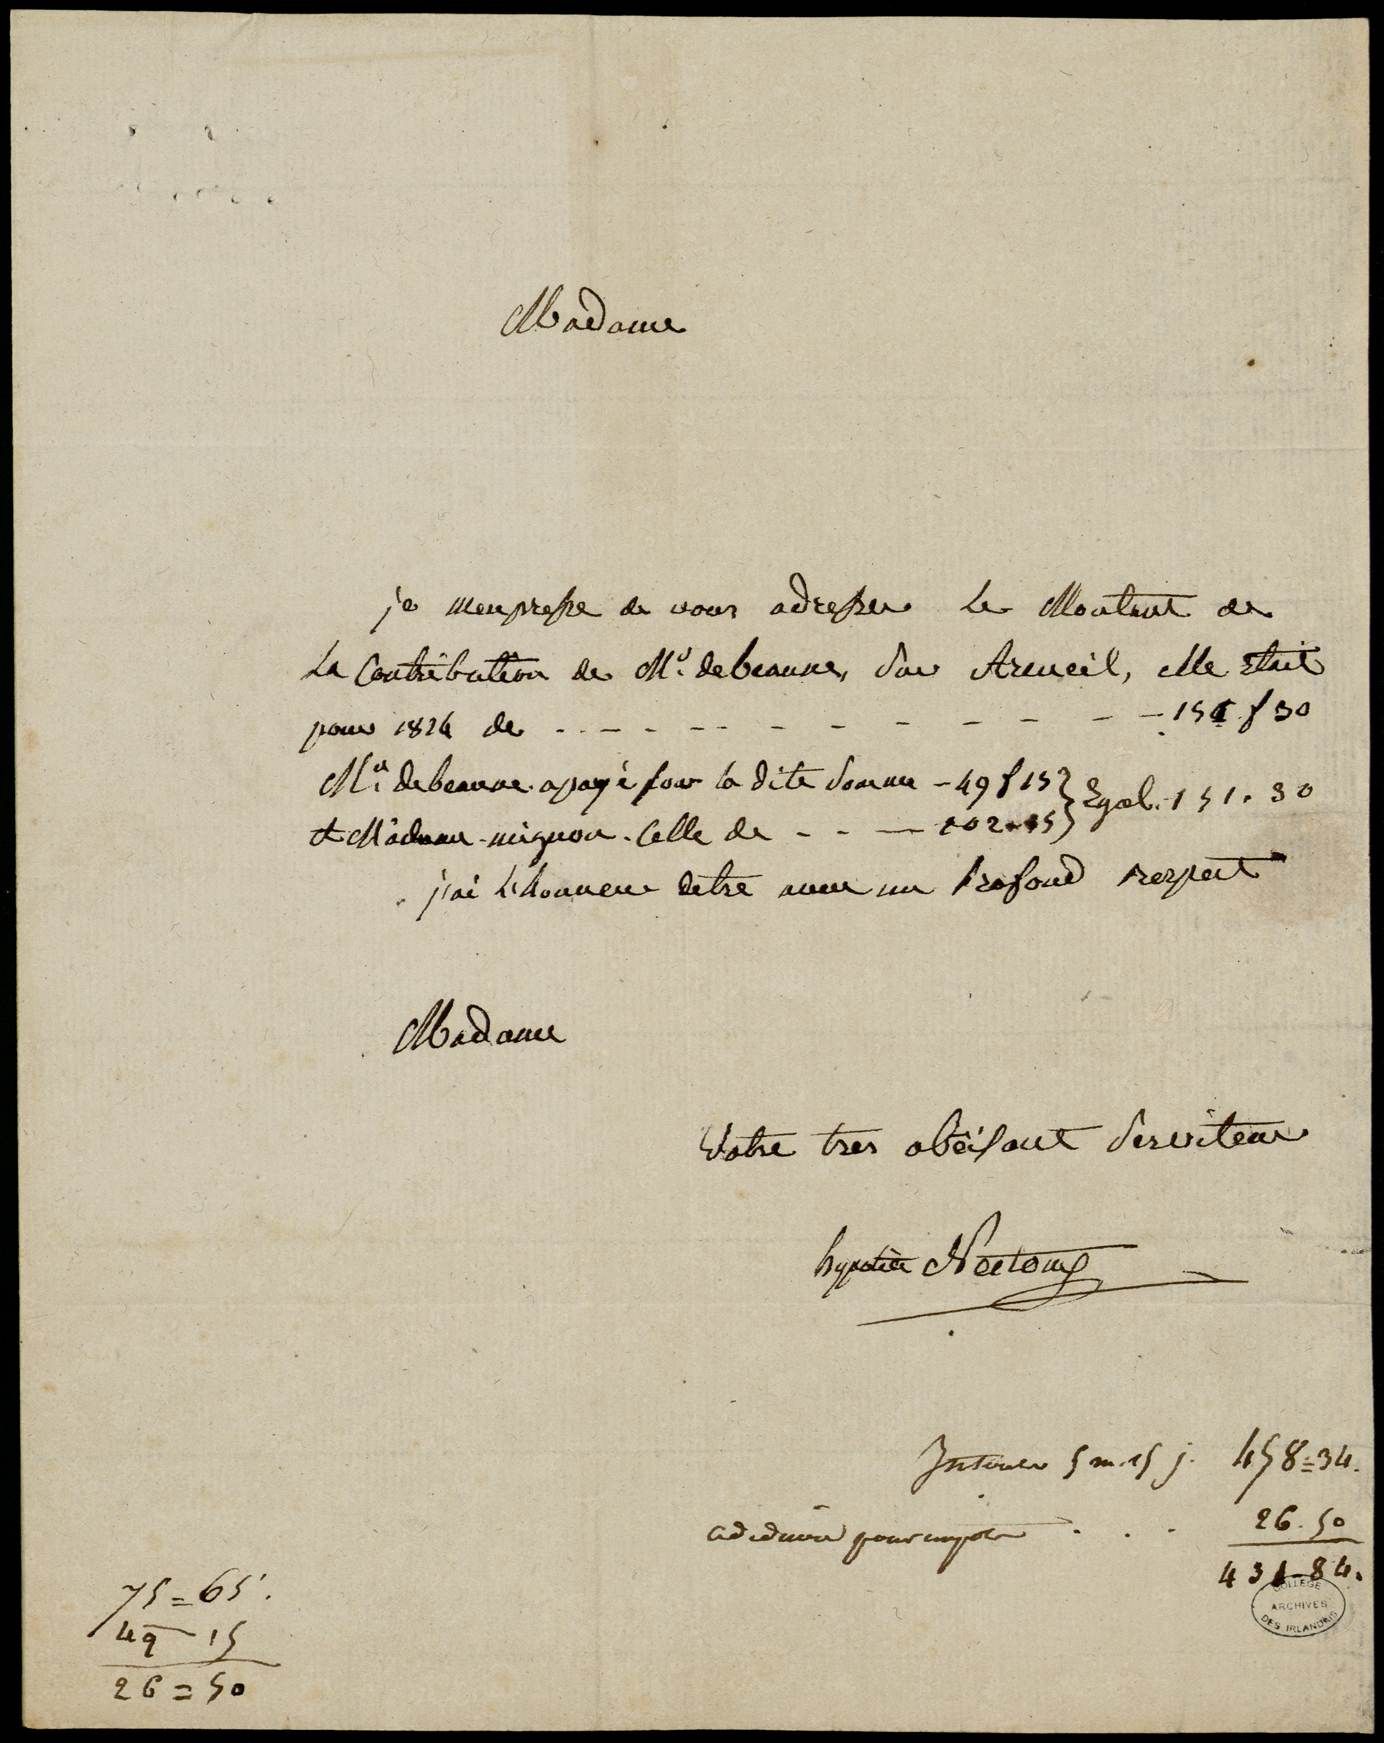 Madame
je menpresse de vous adresser Le Montant de
La Contribution de Mr. debeaune, sur Arcueil, elle Etait
pour 1826 de - - - - - - - - - - - 151 f 30
Mr. debeaune a payé sur la dite somme - 49 f 15 } Egal. 151. 30
et Madame mignon. Celle de - - - 102. 15 }
j'ai L'honneur detre avec un Profond respect
Madame
Votre tres obéisant Serviteur
Noctomy
5 m. 15 j. 458=34.
a déduire pour impots . . . 26. 50
431-84.
75=65.
49-15
26=50
COLLEGE
ARCHIVES
DES IRLANDAIS